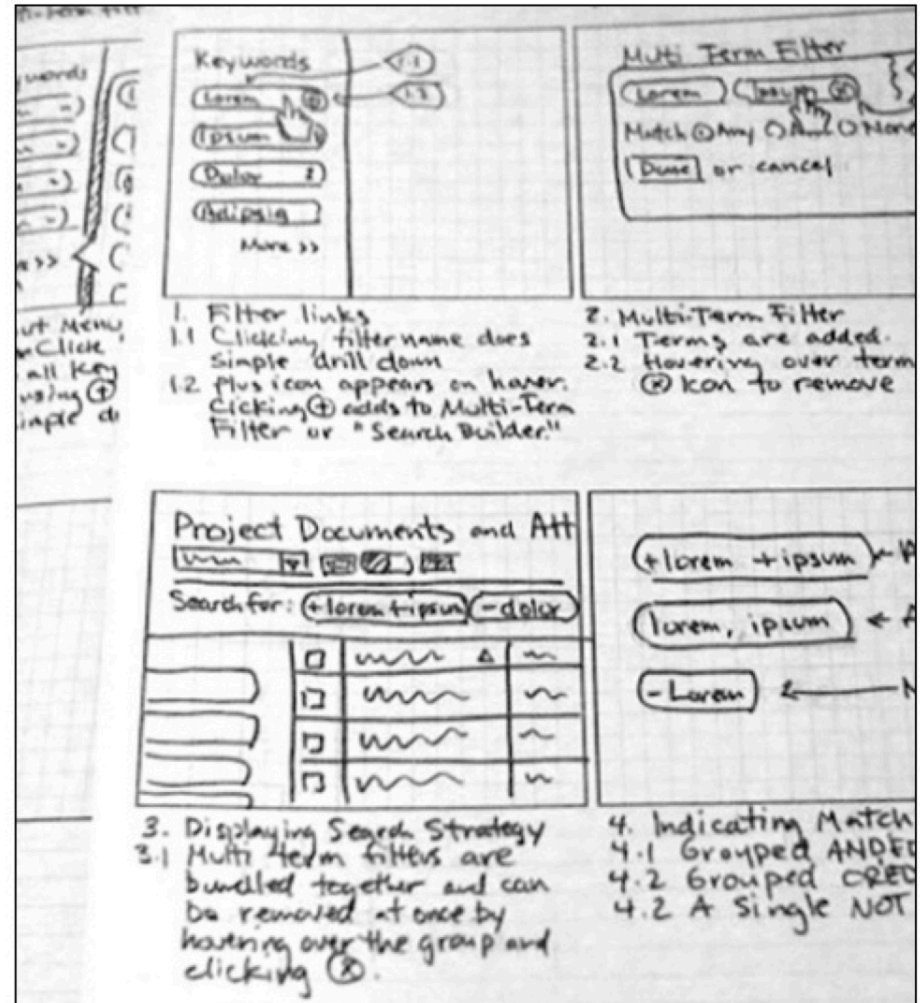 Keywords
1.1
1.2
Lorem
Ipsum
Dolor
Adipsig
More >>
1. Filter links
1.1 Clicking filter name does
simple drill down
1.2 Plus icon appears on hover.
Cicking ⊕ adds to Multi-Term
Filter or "Search Builder."
Multi Term Filter
Lorem Ipsum ⊗
Match Any None
Done or cancel.
2. Multi-Term Filter
2.1 Terms are added.
2.2 Hovering over term
⊗ Icon to remove
Project Documents and Att
Search for: +lorem +ipsum - dolor
3. Displaying Search Strategy
3.1 Multi term filters are
bundled together and can
be removed at once by
hovering over the group and
clicking ⊗.
+lorem +ipsum
lorem, ipsum
- Lorem
4. Indicating Match
4.1 Grouped ANDED
4.2 Grouped ORED
4.2 A Single NOT
ywords
Menu
Click
all Key
using ⊕
imple